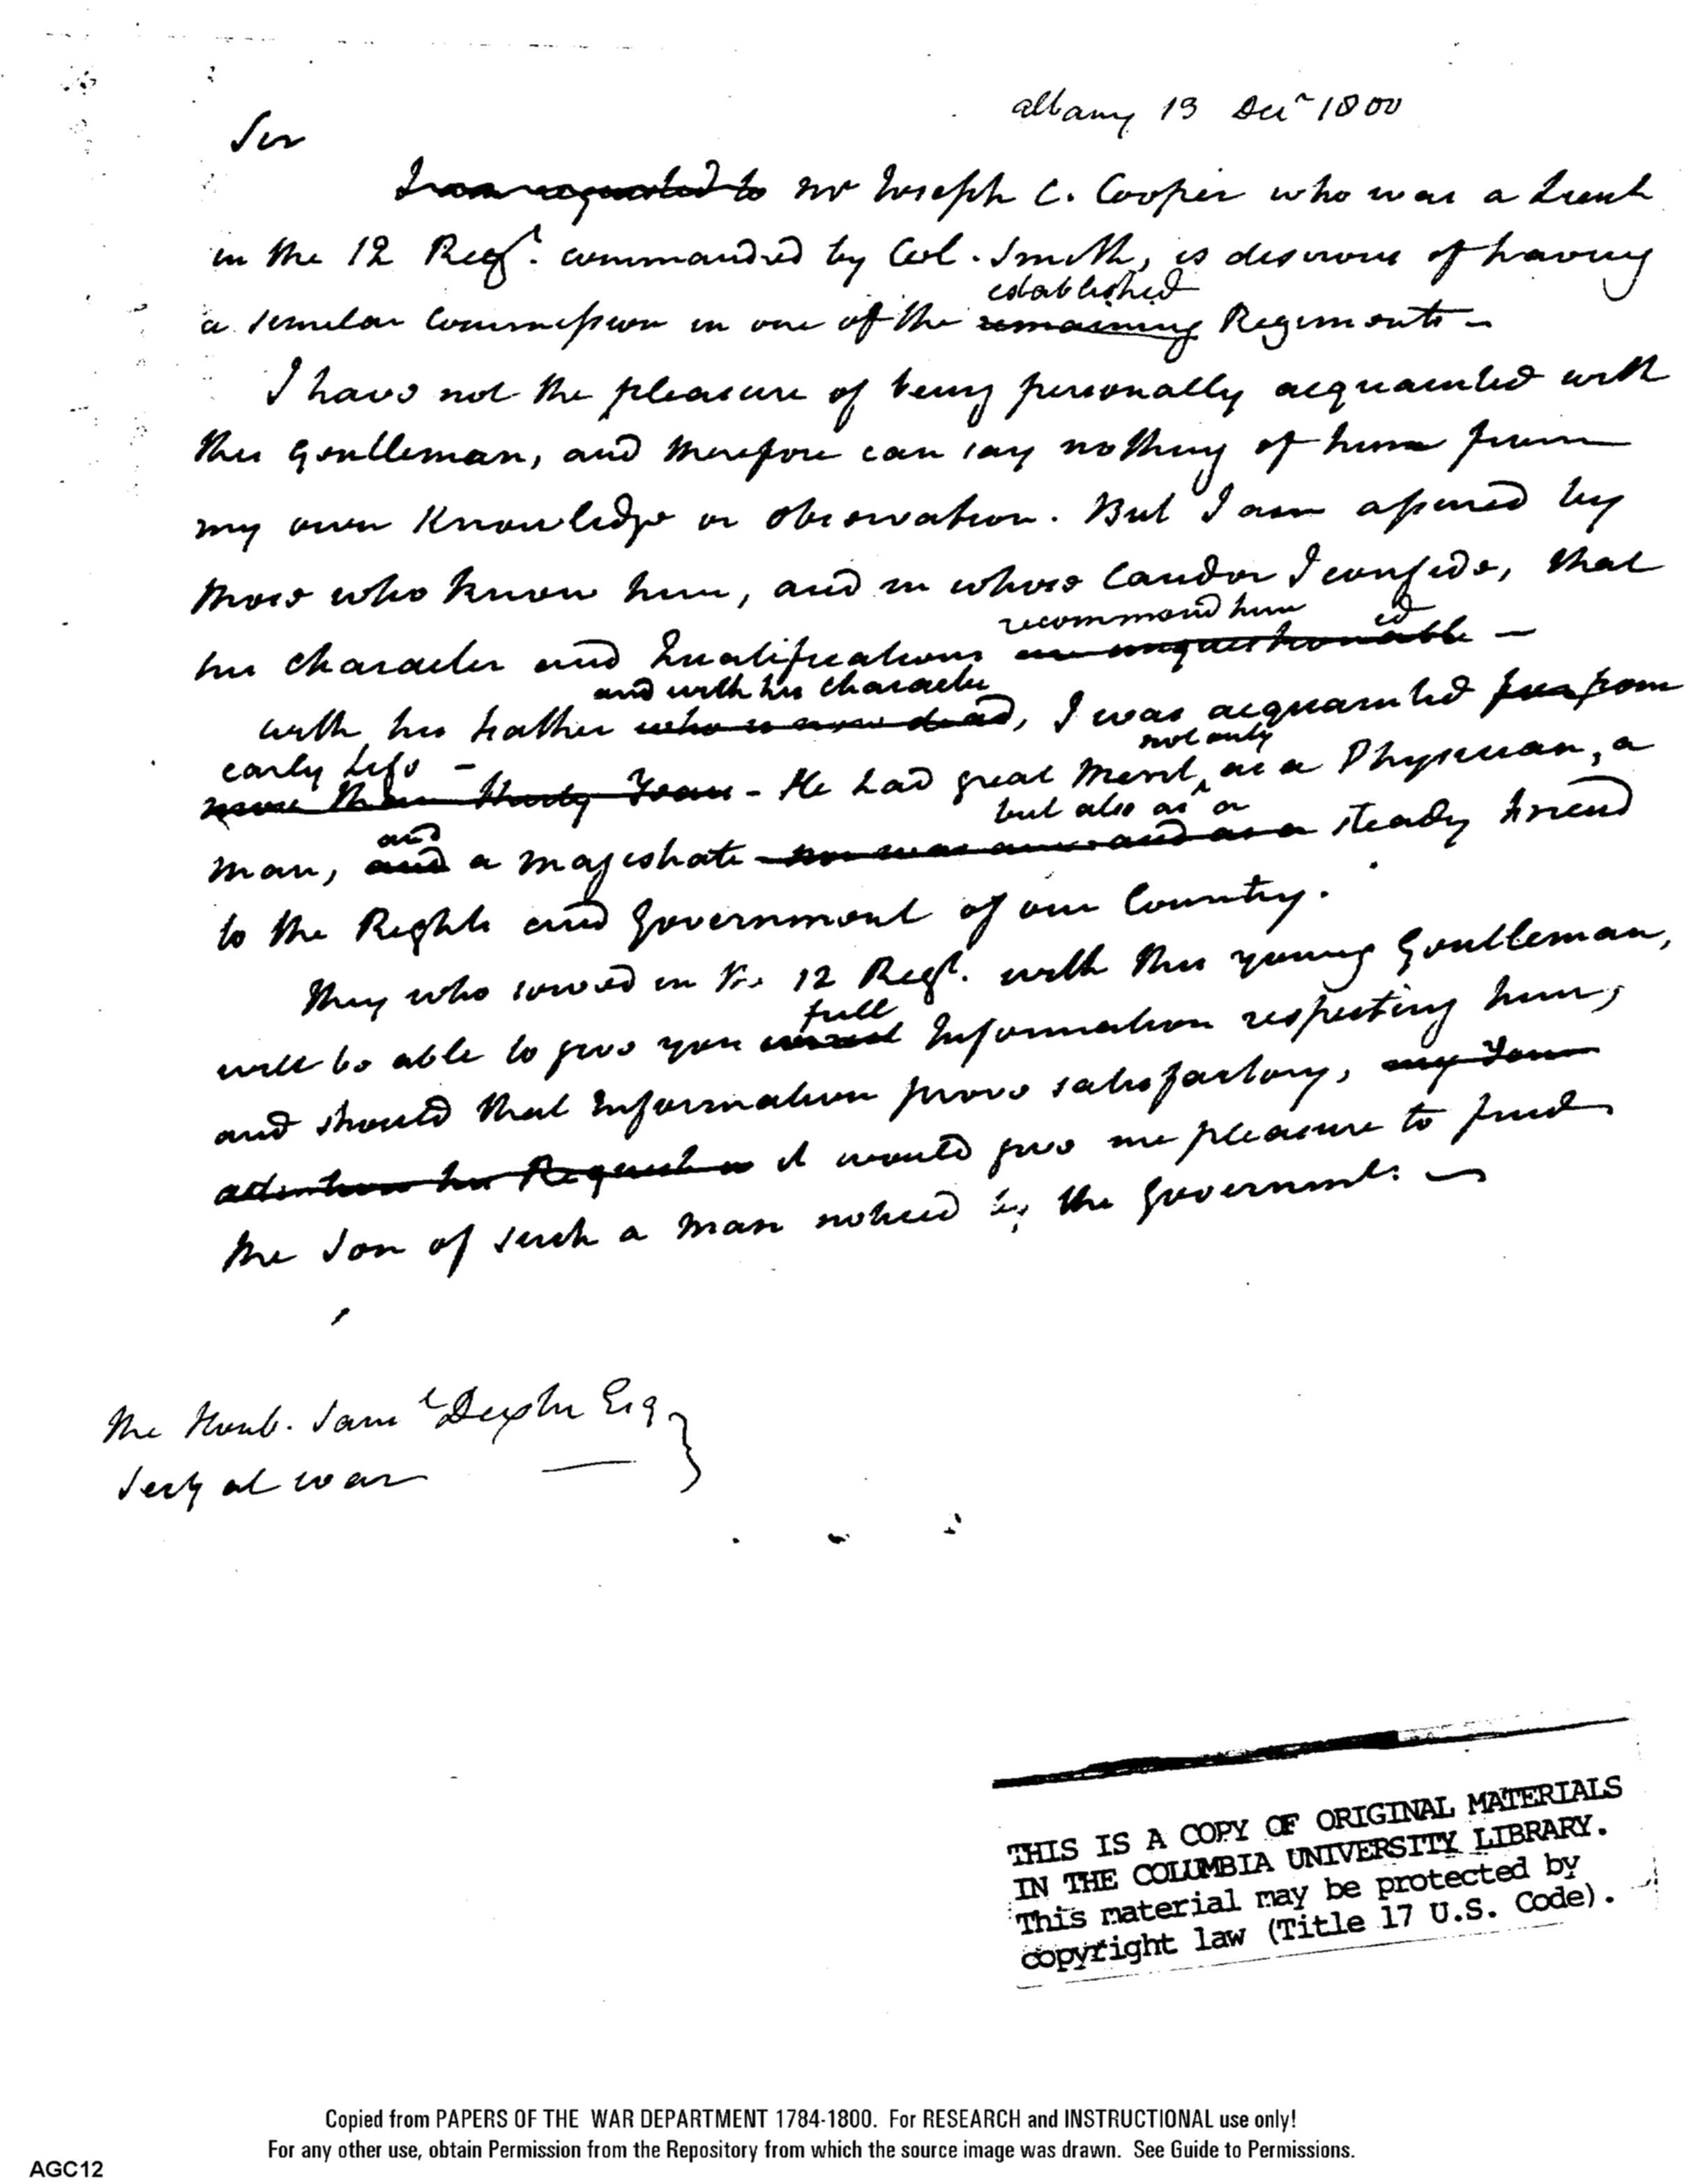 Albany 13 Decr 1800
Sir
I am requested to Mr Joseph C. Cooper who was a Lieut
in the 12 Regt. commanded by Col. Smith, is desirous of having
established
a similar Commission in one of the remaining Regiments –
I have not the pleasure of being personally acquainted with
this Gentleman, and therefore can say nothing of him from
my own Knowledge or observation. But I am assured by
those who know him, and in whose Candor I confide, that
recommend him
his character and Qualifications are unquestionable –
and with his character
with his Father who is now dead, I was acquainted from
early Life – not only
more than thirty Years – He had great Merit, as a Physician, a
and but also as a
man, and a magistrate and as a steady Friend
to the Rights and Government of our Country.
They who served in the 12 Regt. with this young Gentleman,
full
will be able to give you Information respecting him;
and should that Information prove satisfactory, my
attention his Request it would give me pleasure to find
the Son of such a Man noticed by the Government. –
The Honb. Saml Dexter Esq
Secy at war
THIS IS A COPY OF ORIGINAL MATERIALS
IN THE COLUMBIA UNIVERSITY LIBRARY.
This material may be protected by
copyright law (Title 17 U.S. Code).
Copied from PAPERS OF THE WAR DEPARTMENT 1784-1800. For RESEARCH and INSTRUCTIONAL use only!
For any other use, obtain Permission from the Repository from which the source image was drawn. See Guide to Permissions.
AGC12